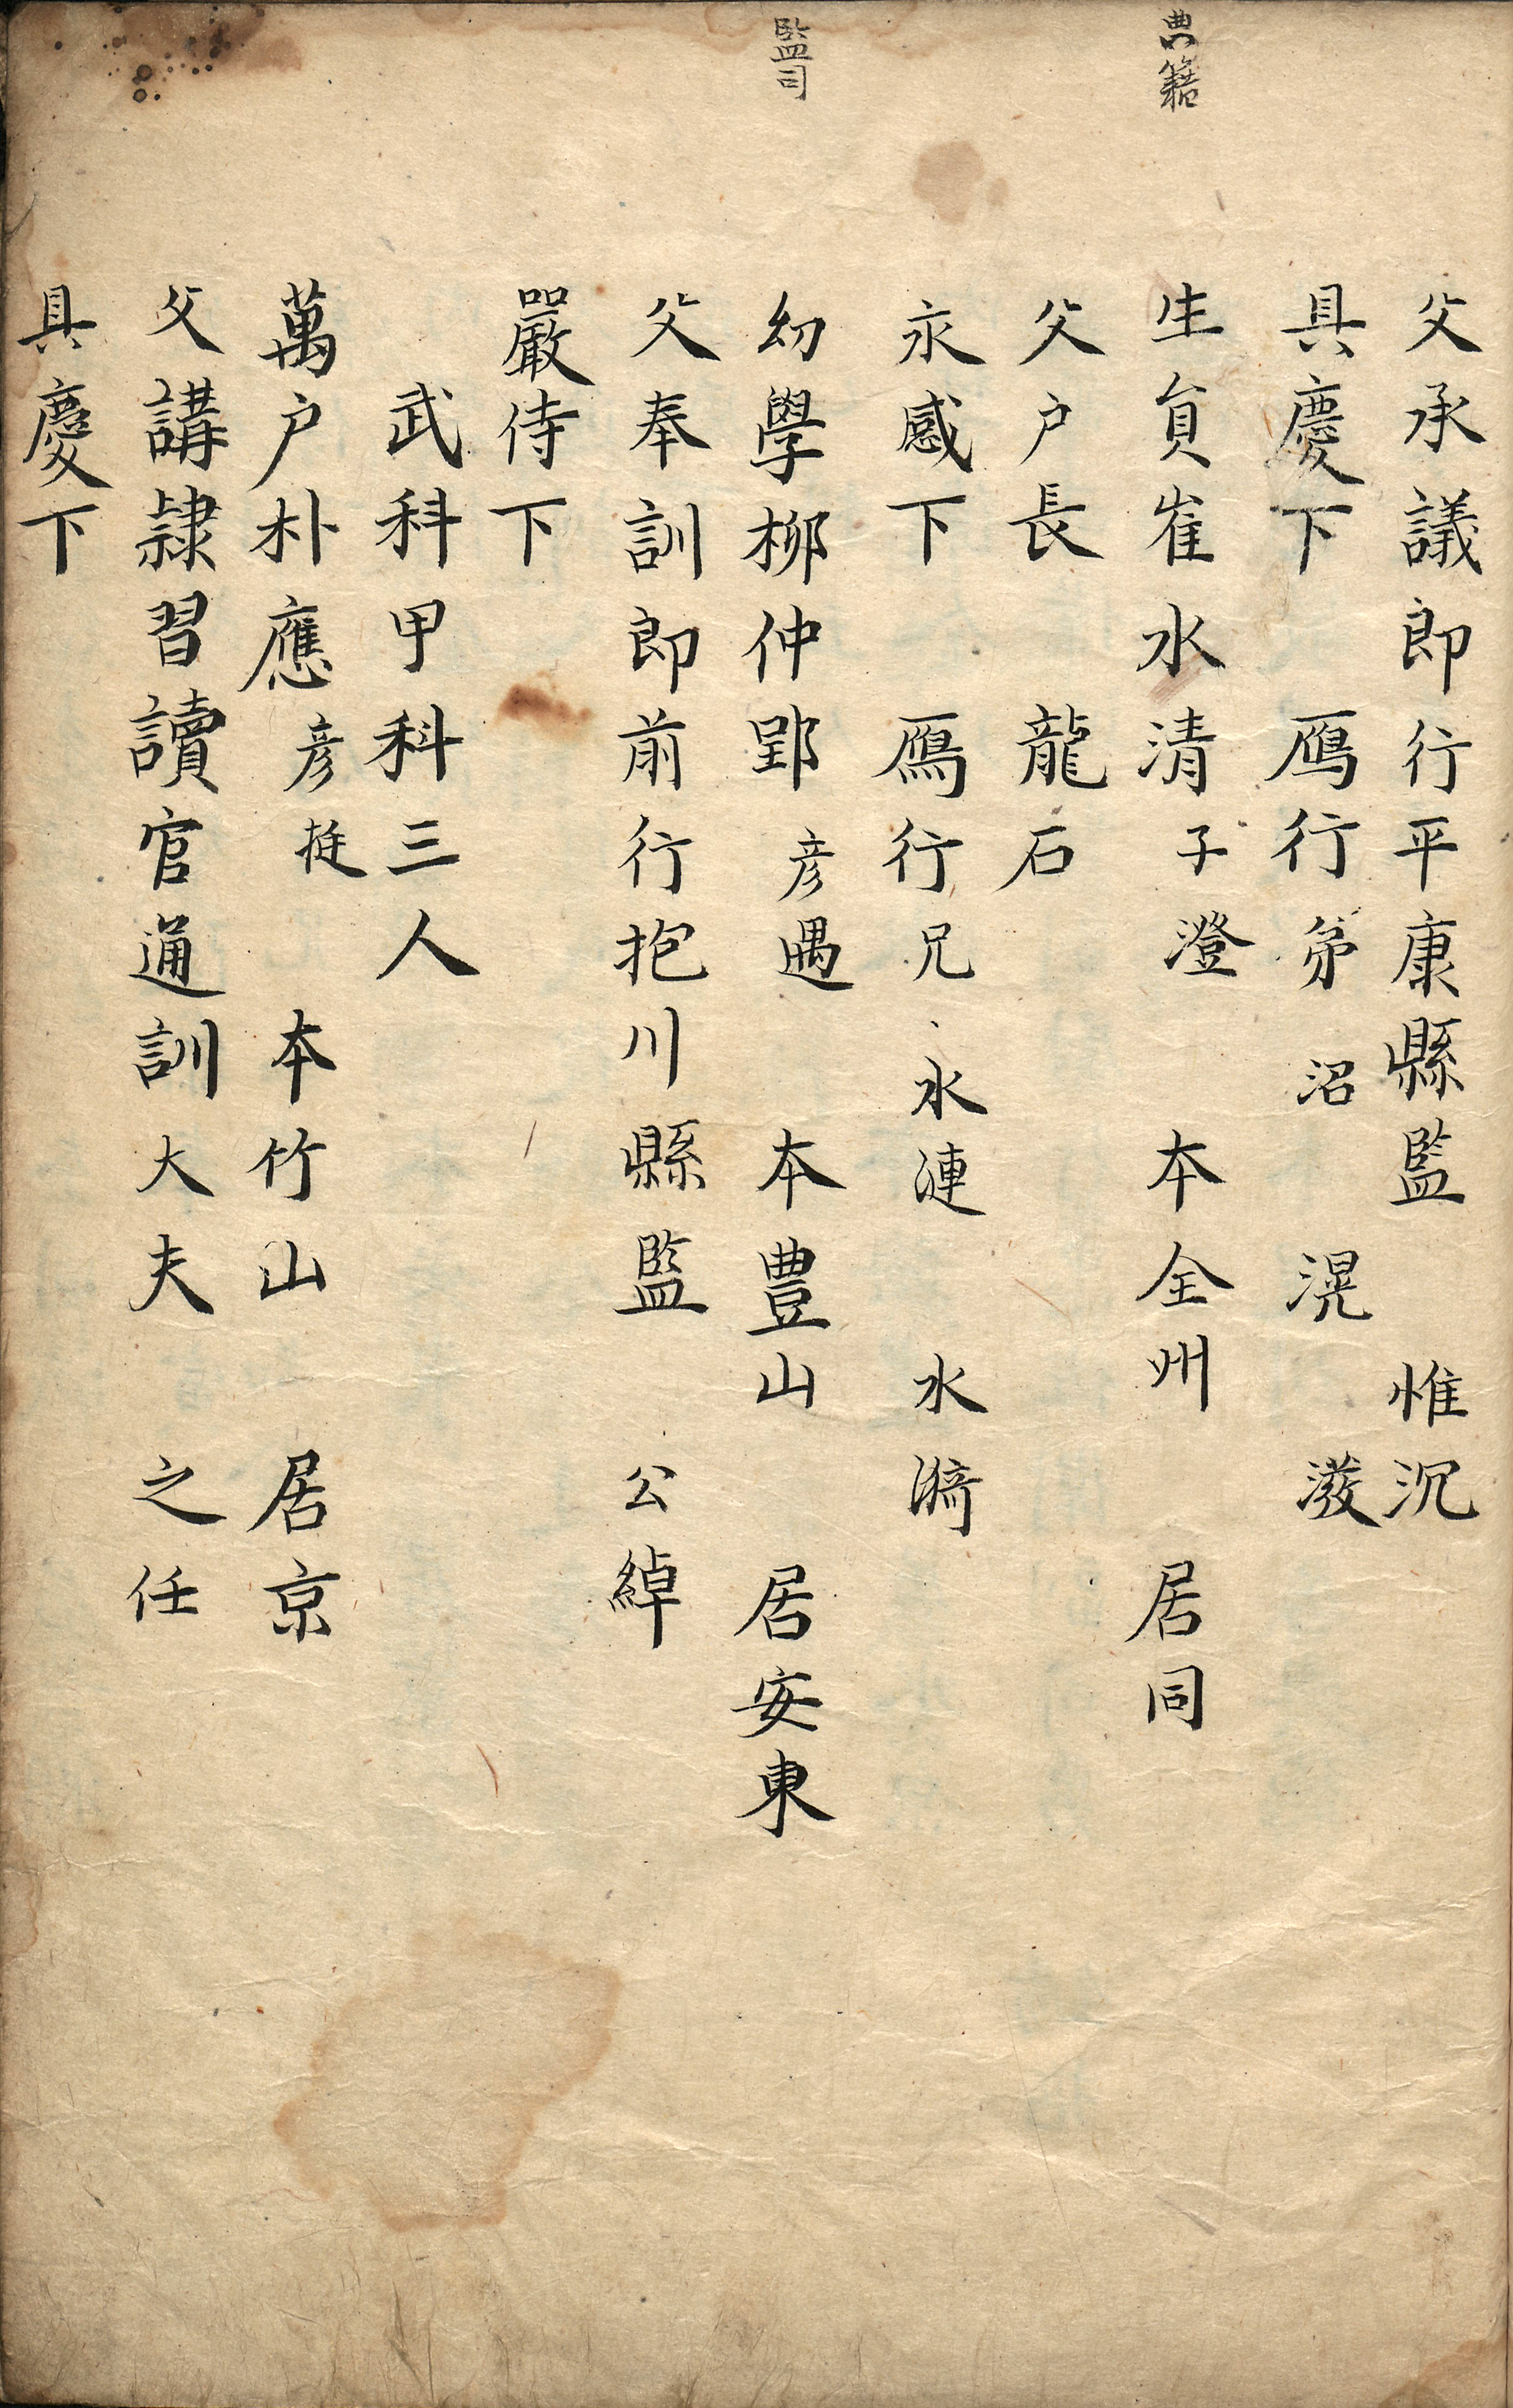 父承議郎行平康縣監 惟沉
具慶下 鴈行弟 沼 滉 潑
典籍
生員崔水淸子澄 本全州 居同
父户長 龍石
永感下 鴈行兄 水漣 水漪
監司
幼學柳仲郢彦遇 本豊山 居安東
父奉訓郎前行抱川縣監 公綽
嚴侍下
武科甲科三人
萬户朴應彦挺 本竹山 居京
父講隷習讀官通訓大夫 之任
具慶下